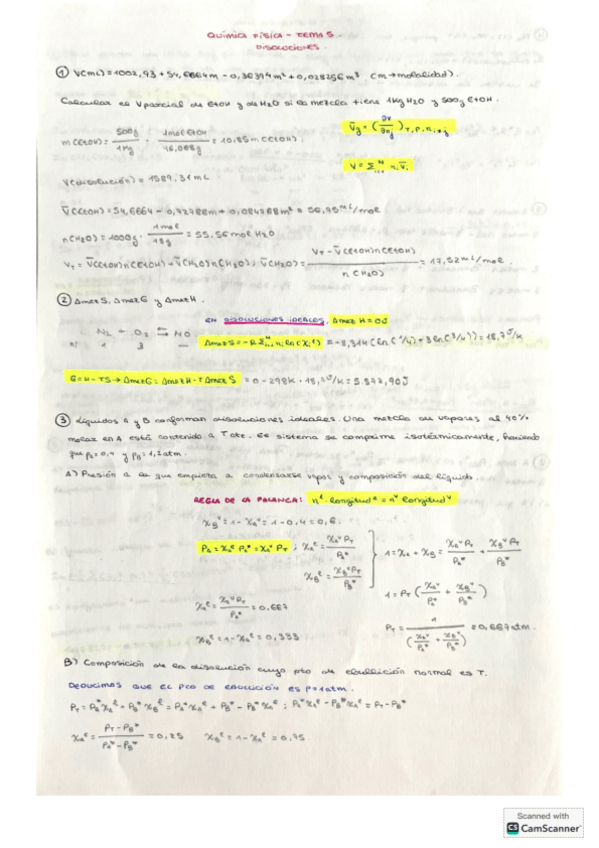 QUÍMICA FÍSICA - TEMA 5
DISOLUCIONES.
① V(mL) = 1002,93 + 54,6664m - 0,36394m² + 0,028256m³ (m→molalidad).
Calcular el V parcial de EtOH y de H₂O si la mezcla tiene 1Kg H₂O y 500g EtOH.
m(EtOH) = 500g/1Kg · 1mol EtOH/46,068g = 10,85 m(EtOH)
V̄j = (∂V/∂nj)T,P,ni≠j
V = Σ ni V̄i
V(disolución) = 1589,31 mL
V̄(EtOH) = 54,6664 - 0,72788m + 0,084768m² = 56,75 mL/mol
n(H₂O) = 1000g · 1mol/18g = 55,56 mol H₂O
VT = V̄(EtOH)n(EtOH) + V̄(H₂O)n(H₂O); V̄(H₂O) = (VT - V̄(EtOH)n(EtOH))/n(H₂O) = 17,52 mL/mol.
② ΔmezS, ΔmezG y ΔmezH.
EN DISOLUCIONES IDEALES, ΔmezH = 0J
N₂ + O₂ ⇄ NO
1 3 —
ΔmezS = -R Σ ni ln(Xi) = -8,314(ln(1/4) + 3ln(3/4)) = 18,7 J/K
G = H - TS → ΔmezG = ΔmezH - TΔmezS = 0 - 298K · 18,7 J/K = 5.572,90J
③ Líquidos A y B conforman disoluciones ideales. Una mezcla de vapores al 40%
molar en A está contenido a T cte. El sistema se comprime isotérmicamente,
que PA = 0,4 y PB = 1,2 atm.
A) Presión a la que empieza a condensarse vapor y composición del líquido.
REGLA DE LA PALANCA: nᴸ · longitudᴸ = nᵛ longitudᵛ
XBᵛ = 1 - XAᵛ = 1 - 0,4 = 0,6.
PA = XAᴸ PA* = XAᵛ PT ; XAᴸ = XAᵛPT/PA*
XBᴸ = XBᵛPT/PB*
1 = XA + XB = XAᵛPT/PA* + XBᵛPT/PB*
1 = PT (XAᵛ/PA* + XBᵛ/PB*)
XAᴸ = XAᵛPT/PA* = 0,667
PT = 1/(XAᵛ/PA* + XBᵛ/PB*) = 0,667 atm.
XBᴸ = 1 - XAᴸ = 0,333
B) Composición de la disolución cuyo pto de ebullición normal es T.
DEDUCIMOS QUE EL PTO DE EBULLICIÓN ES P = 1atm.
PT = PA*XAᴸ + PB*XBᴸ = PA*XAᴸ + PB* - PB*XAᴸ ; PA*XAᴸ - PB*XAᴸ = PT - PB*
XAᴸ = (PT - PB*)/(PA* - PB*) = 0,25 XBᴸ = 1 - XAᴸ = 0,75.
Scanned with
CS CamScanner